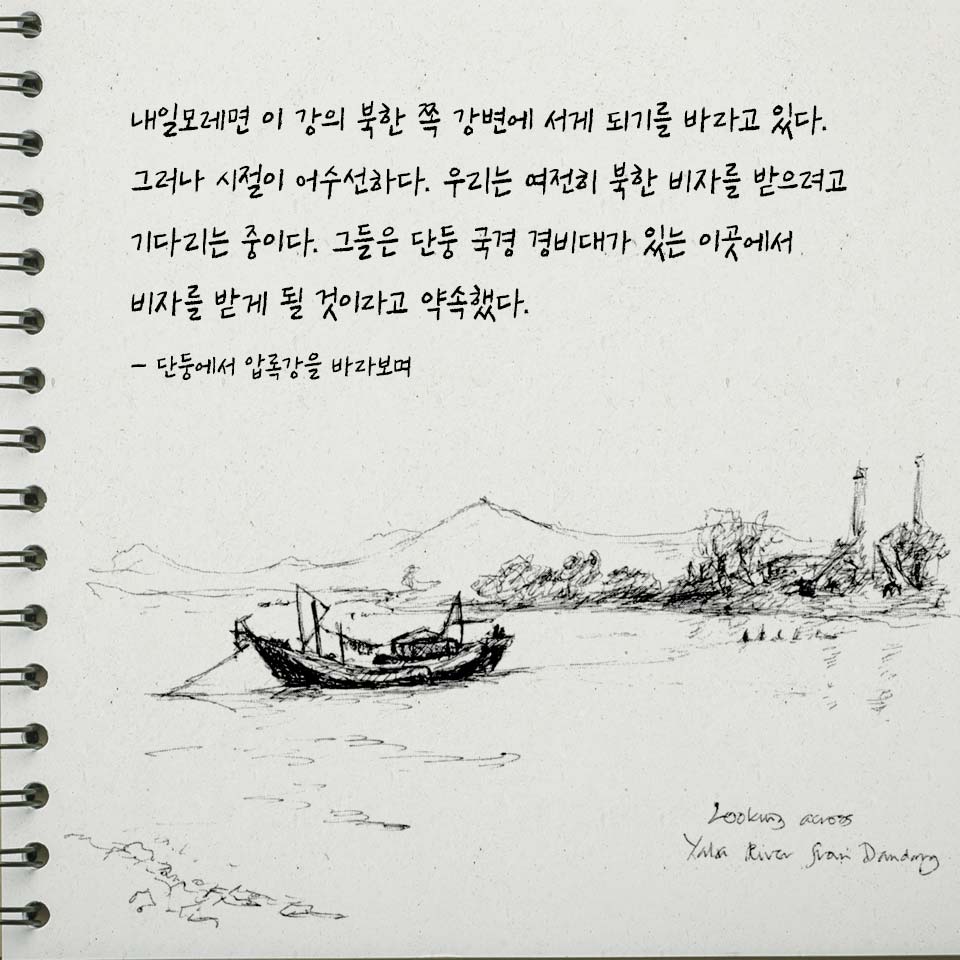 내일모레면 이 강의 북한 쪽 강변에 서게 되기를 바라고 있다.
그러나 시절이 어수선하다. 우리는 여전히 북한 비자를 받으려고
기다리는 중이다. 그들은 단둥 국경 경비대가 있는 이곳에서
비자를 받게 될 것이라고 약속했다.
- 단둥에서 압록강을 바라보며
Looking across
Yalu River from Dandong